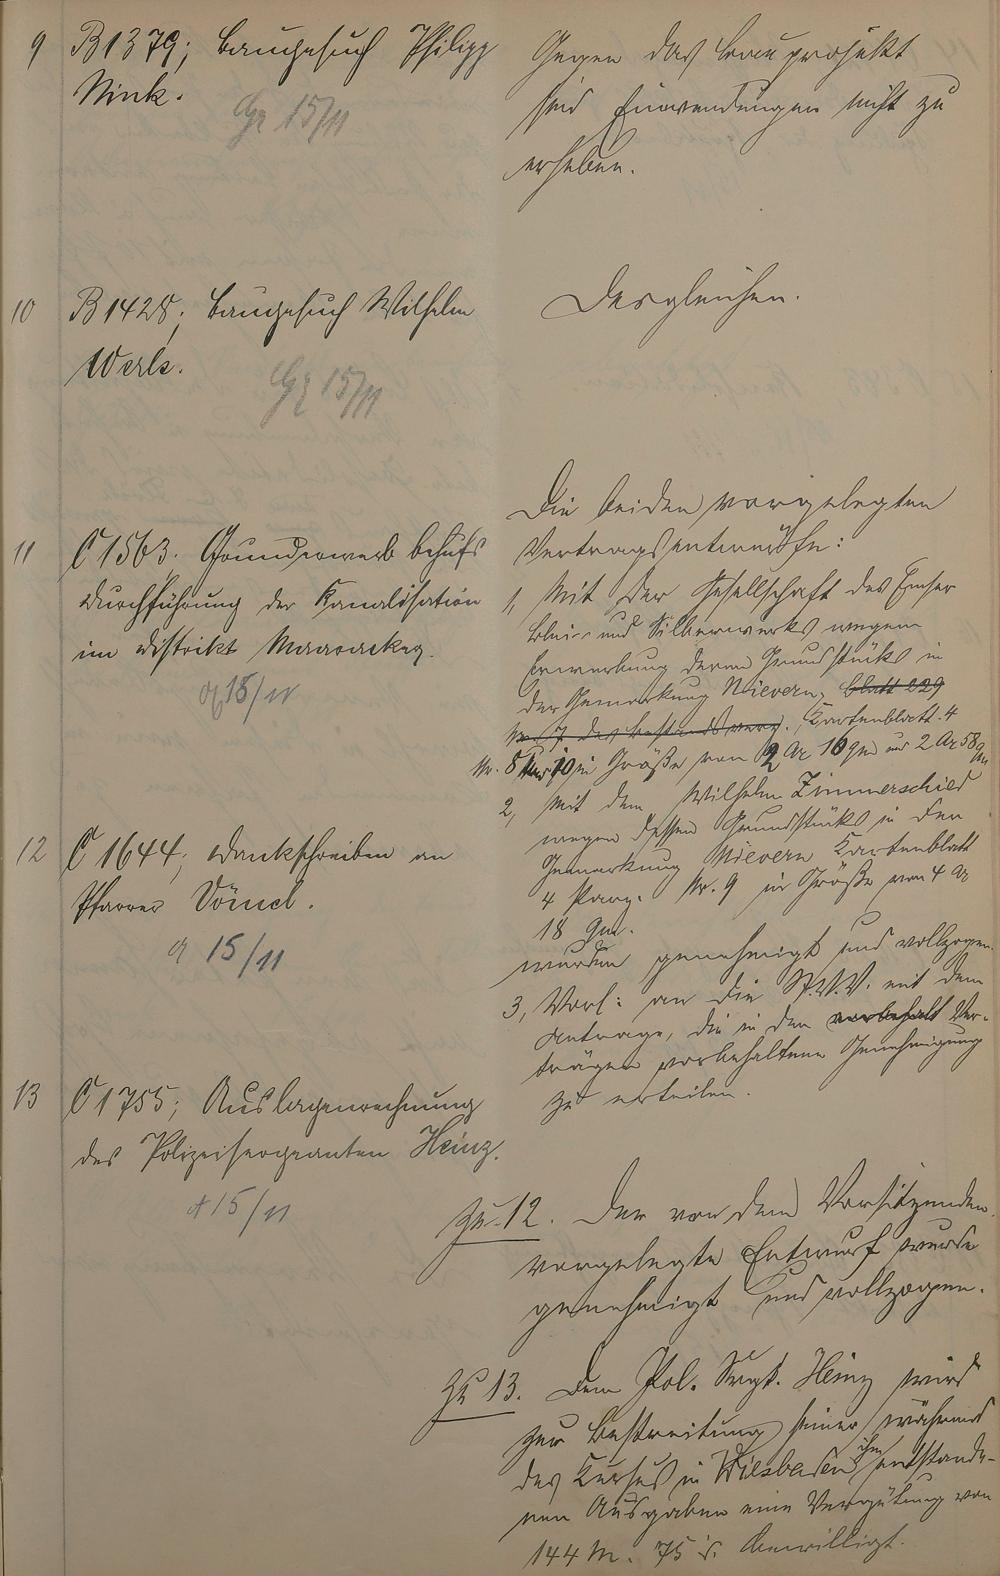 9 B 1379; Baugesuch Philipp
Nink.
15/11
Gegen das Bauprojekt
sind Einwendungen nicht zu
erheben.
10 B 1428; Baugesuch Wilhelm
Werle.
15/11
Desgleichen.
11 C 1563. Grunderwerb behufs
Durchführung der Kanalisation
im Distrikt
15/11
Die beiden vorgelegten
Vertragsentwürfe:
1, Mit der Gesellschaft des Emser
Blei- und Silberwerks wegen
Erwerbung deren Grundstücks in
der Gemarkung Nievern, Blatt 229
No 7 des Bestandsverz., Kartenblatt 4
Nr. 8 10 in Größe von 2 Ar 16 qm und 2 Ar 58 qm
2, mit dem Wilhelm Zimmerschied
wegen dessen Grundstücks in der
Gemarkung Nievern Kartenblatt
4 Parz. Nr. 9 in Größe von 4 Ar
18 qm.
wurden genehmigt und vollzogen.
3, Vorl: an die St.V.V. mit dem
Antrage, die in den vorbehalt Ver-
trägen vorbehaltene Genehmigung
zu erteilen.
12 C 1644; Dankschreiben an
Pfarrer Vömel.
15/11
13 C 1755; Auslagenrechnung
des Polizeisergeanten Heinz.
15/11
Zu 12. Der von dem Vorsitzenden
vorgelegte Entwurf wurde
genehmigt und vollzogen.
Zu 13. Dem Pol. Sergt. Heinz wird
zur Bestreitung seiner während
des Kursus in Wiesbaden ihm entstande-
nen Ausgaben eine Vergütung von
144 M. 75 bewilligt.